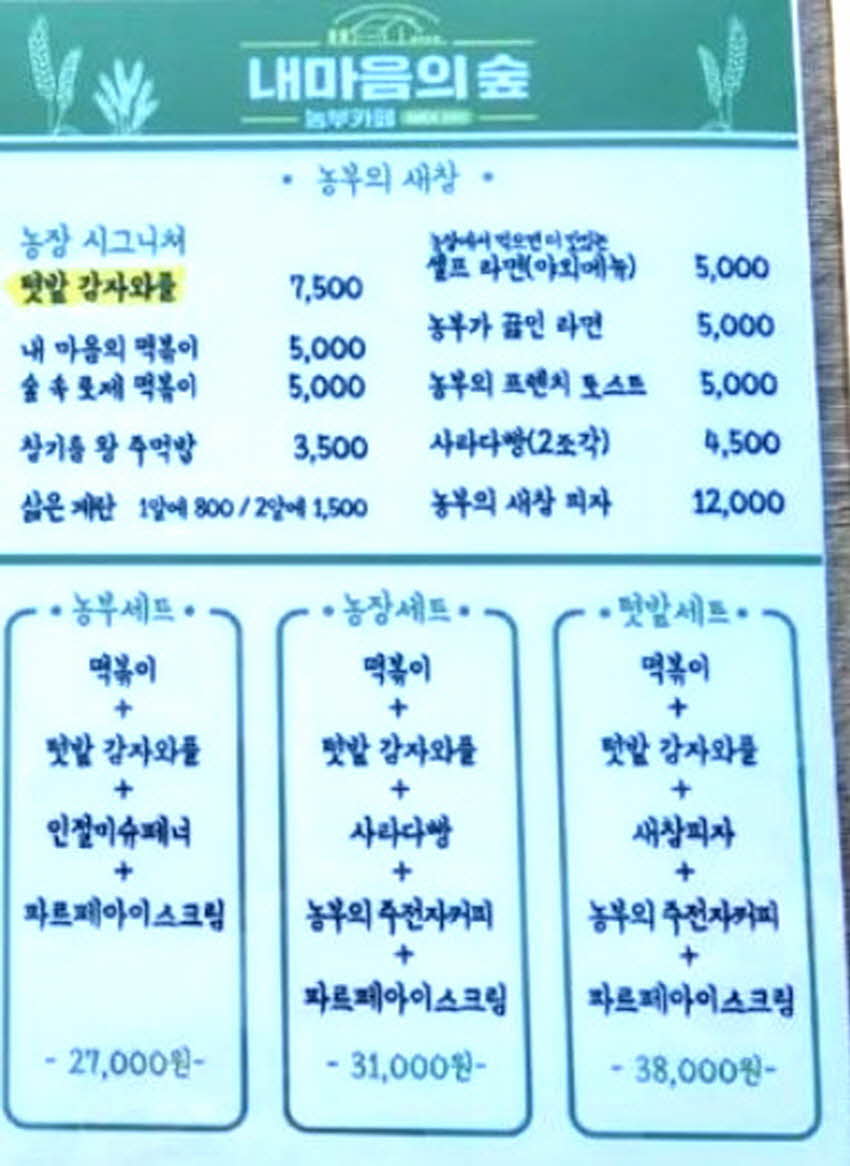 내마음의 숲
농부카페
• 농부의 새참 •
농장 시그니쳐
텃밭 감자와플 7,500
내 마음의 떡볶이 5,000
숲 속 로제 떡볶이 5,000
참기름 왕 주먹밥 3,500
삶은 계란 1알에 800 / 2알에 1,500
농장에서 먹으면 더 맛있는
셀프 라면(야외메뉴) 5,000
농부가 끓인 라면 5,000
농부의 프렌치 토스트 5,000
사라다빵(2조각) 4,500
농부의 새참 피자 12,000
• 농부세트 •
떡볶이
+
텃밭 감자와플
+
인절미슈페너
+
파르페아이스크림
- 27,000원-
• 농장세트 •
떡볶이
+
텃밭 감자와플
+
사라다빵
+
농부의 주전자커피
+
파르페아이스크림
- 31,000원-
• 텃밭세트 •
떡볶이
+
텃밭 감자와플
+
새참피자
+
농부의 주전자커피
+
파르페아이스크림
- 38,000원-